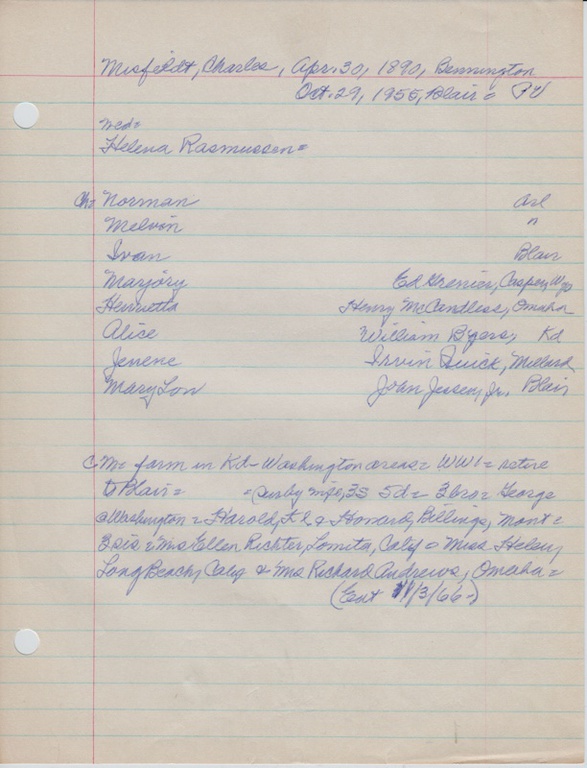 Misfeldt, Charles, Apr. 30, 1890, Bennington
Oct. 29, 1955, Blair =
med=
Helena Rasmussen=
Ch= Norman Arl
Melvin "
Ivan Blair
Marjory Ed Grenier, Casper, Wyo
Henrietta Henry McCandless, Omaha
Alice William Byers, Kd
Jenene Irvin Quick, Millard
Mary Lou John Jensen, Jr. Blair
CM= farm in Kd-Washington areas= WW1= retire
to Blair= = surby 3S 5d= 3 bro= George
@ Washington = Harold, & Howard, Billings, Mont=
3 sis= Mrs Ellen Richter, Lomita, Calif = Miss Helen,
Long Beach, Calif & Mrs Richard Andrews, Omaha=
(Ent 11/3/66-)